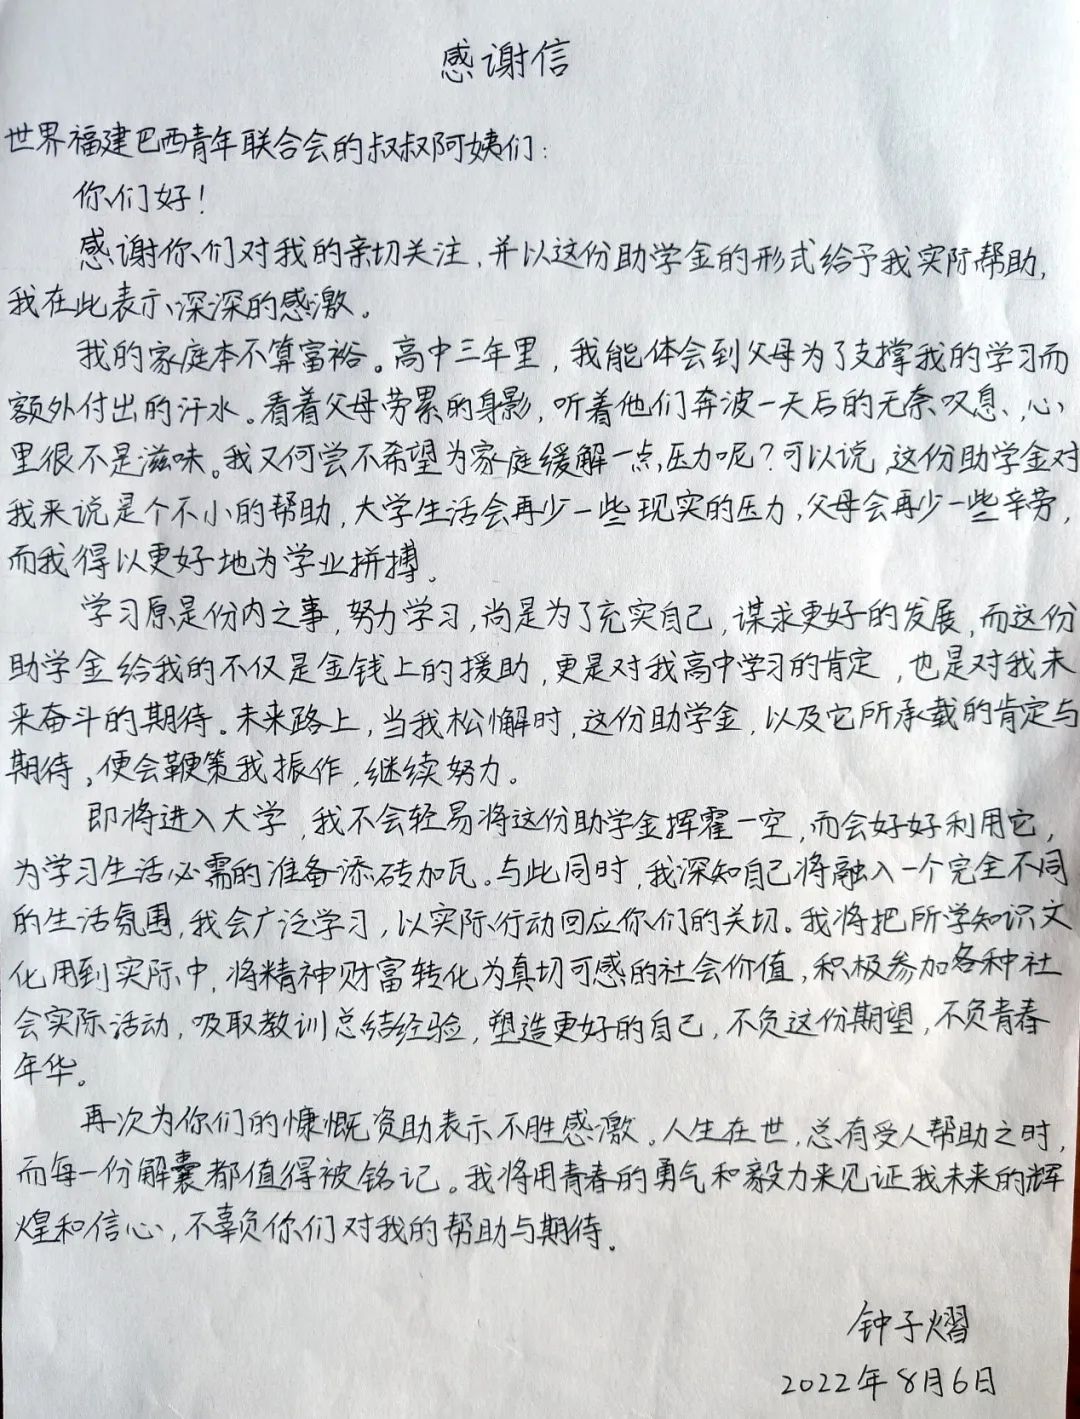 感谢信
世界福建巴西青年联合会的叔叔阿姨们:
你们好!
感谢你们对我的亲切关注,并以这份助学金的形式给予我实际帮助,
我在此表示深深的感激。
我的家庭本不算富裕。高中三年里,我能体会到父母为了支撑我的学习而
额外付出的汗水。看着父母劳累的身影,听着他们奔波一天后的无奈叹息,心
里很不是滋味。我又何尝不希望为家庭缓解一点压力呢?可以说,这份助学金对
我来说是个不小的帮助,大学生活会再少一些现实的压力,父母会再少一些辛劳,
而我得以更好地为学业拼搏。
学习原是份内之事,努力学习,尚是为了充实自己,谋求更好的发展,而这份
助学金给我的不仅是金钱上的援助,更是对我高中学习的肯定,也是对我未
来奋斗的期待。未来路上,当我松懈时,这份助学金,以及它所承载的肯定与
期待,便会鞭策我振作,继续努力。
即将进入大学,我不会轻易将这份助学金挥霍一空,而会好好利用它,
为学习生活必需的准备添砖加瓦。与此同时,我深知自己将融入一个完全不同
的生活氛围,我会广泛学习,以实际行动回应你们的关切。我将把所学知识文
化用到实际中,将精神财富转化为真切可感的社会价值,积极参加各种社
会实际活动,吸取教训总结经验,塑造更好的自己,不负这份期望,不负青春
年华。
再次为你们的慷慨资助表示不胜感激。人生在世,总有受人帮助之时,
而每一份解囊都值得被铭记。我将用青春的勇气和毅力来见证我未来的辉
煌和信心,不辜负你们对我的帮助与期待。
钟子熠
2022年8月6日